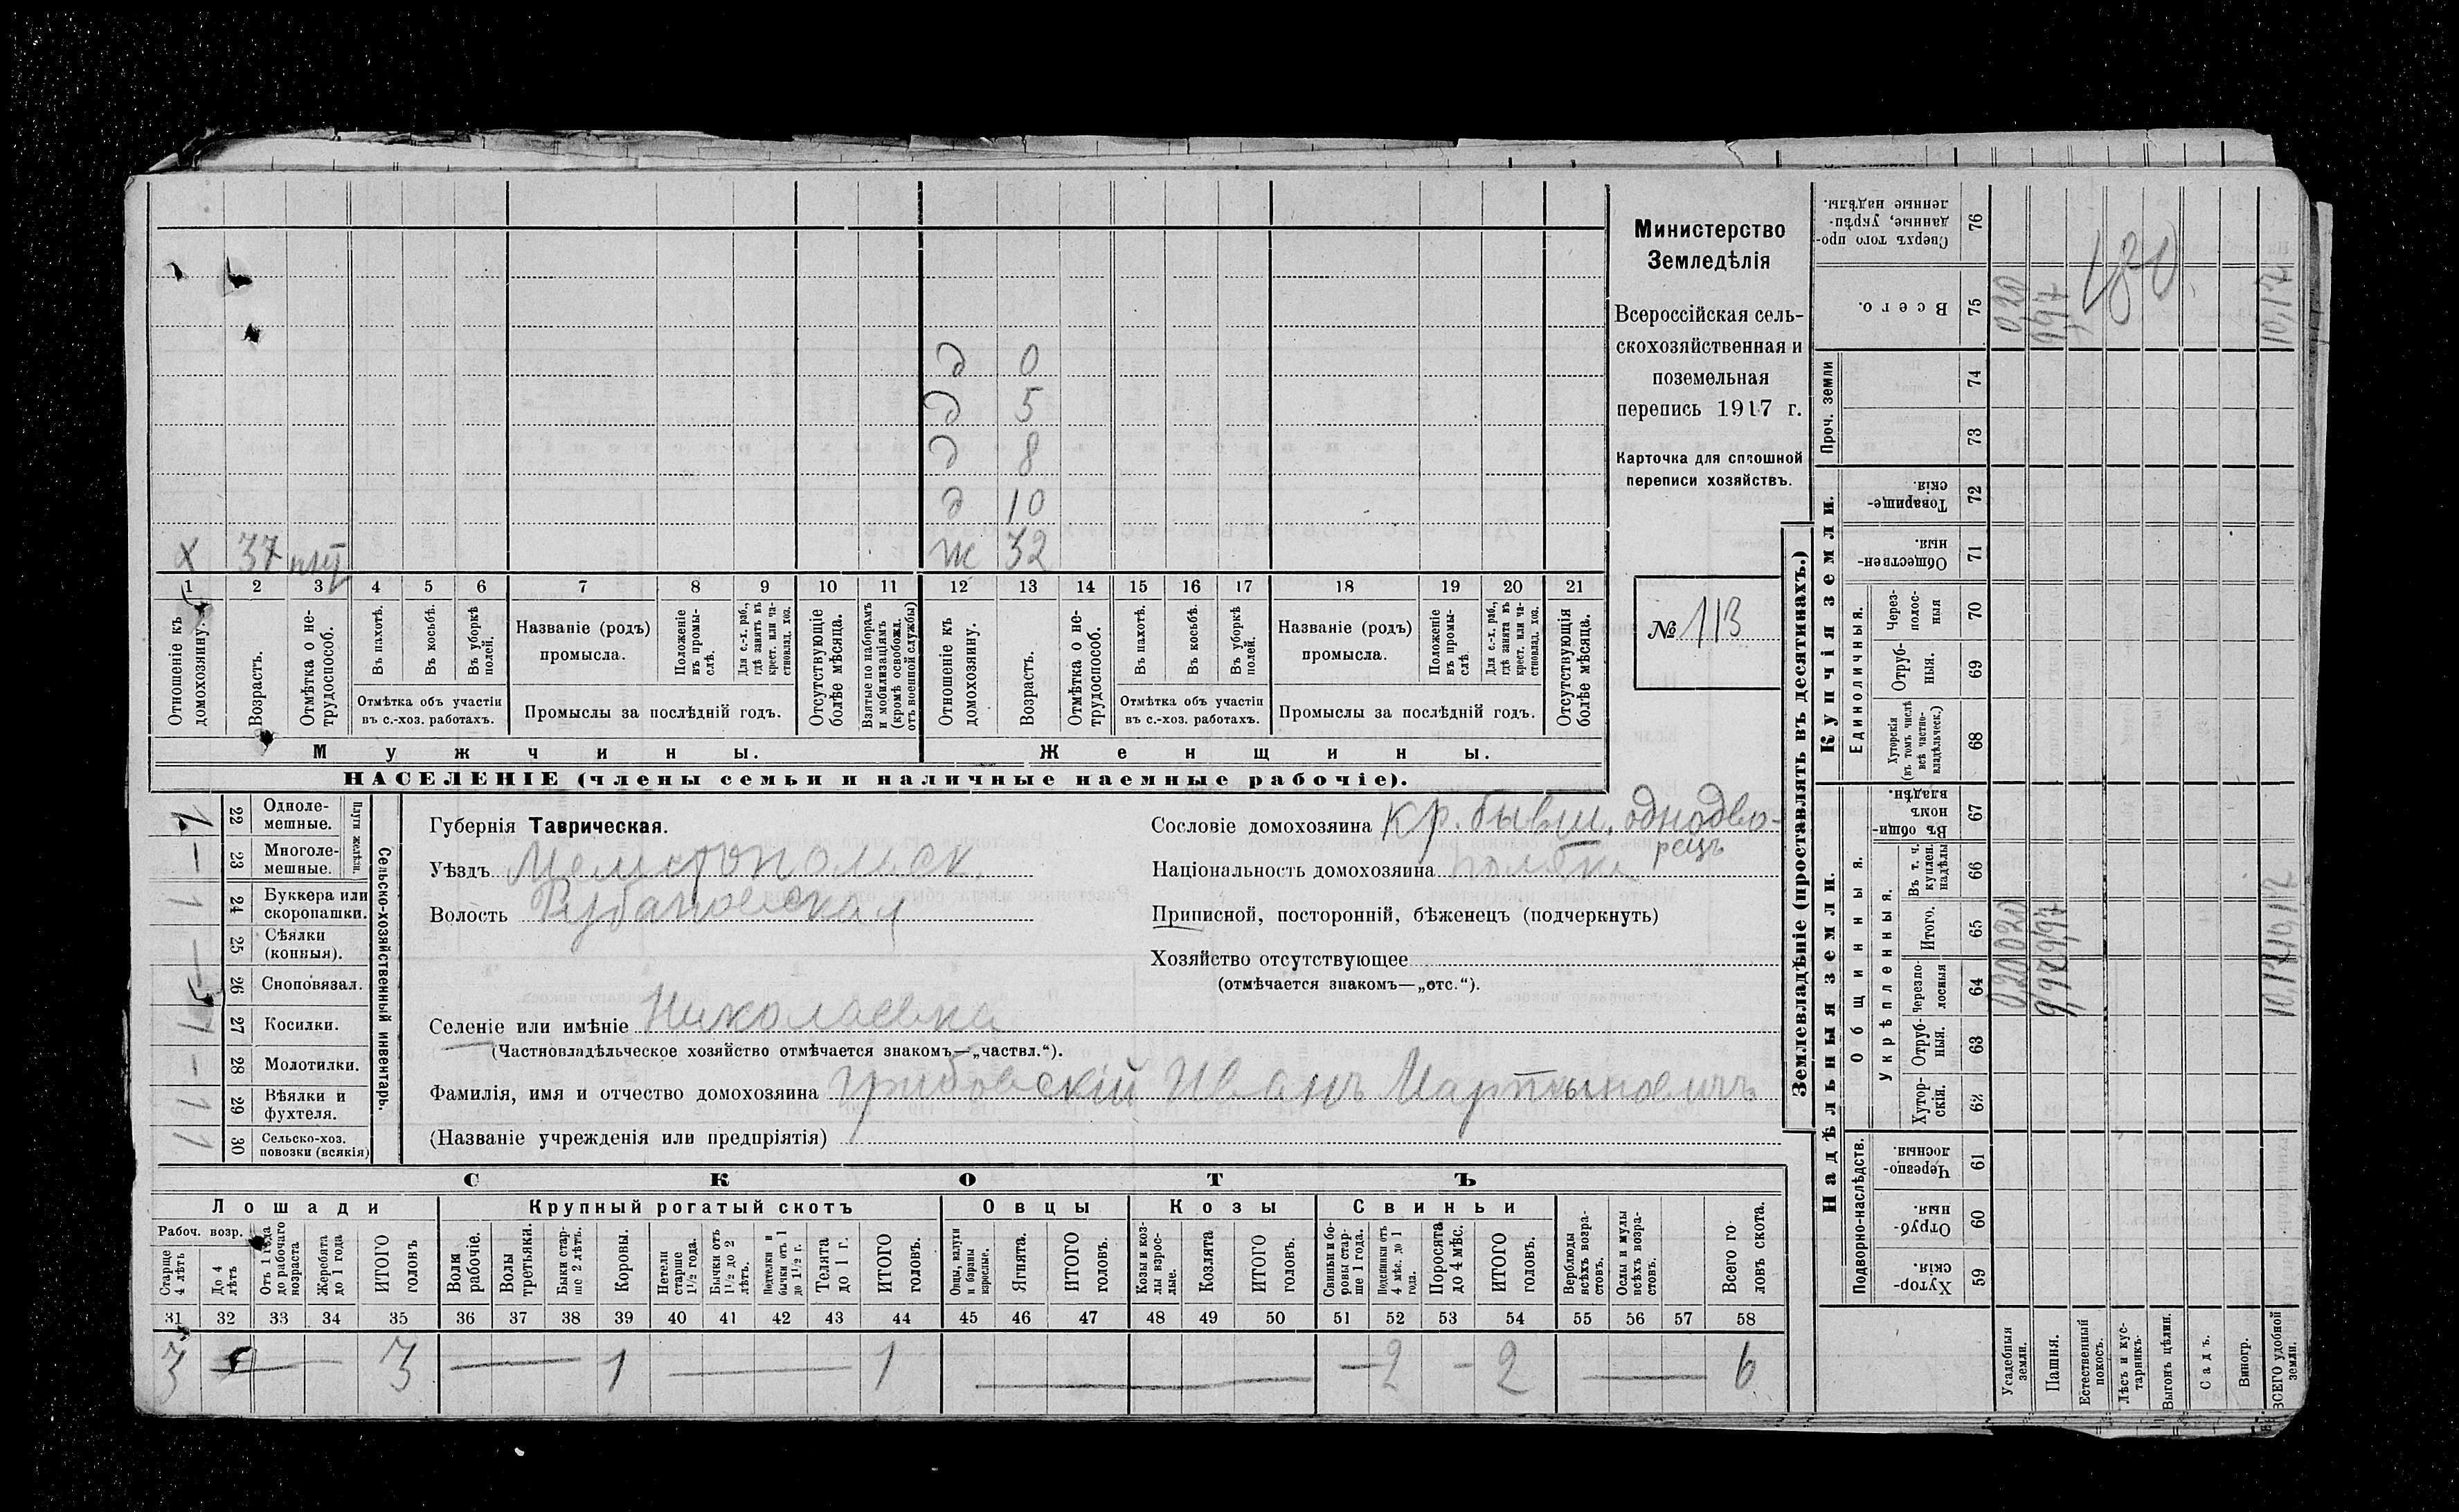 д 0
д 5
д 8
д 10
х 37 ж 32
1 2 3 4 5 6 7 8 9 10 11 12 13 14 15 16 17 18 19 20 21
Отношеніе къ домохозяину.
Возрастъ.
Отмѣтка о не-
трудоспособ.
Въ пахотѣ.
Въ косьбѣ.
Въ уборкѣ
полей.
Отмѣтка объ участіи
въ с.-хоз. работахъ.
Названіе (родъ)
промысла.
Положеніе
въ промы-
слѣ.
Для с.-х. раб.,
гдѣ занятъ въ
крест. или ча-
стновлад. хоз.
Промыслы за послѣдній годъ.
Отсутствующіе
болѣе мѣсяца.
Взятые по наборамъ
и мобилизаціямъ
(кромѣ освобожд.
отъ военной службы)
Отношеніе къ
домохозяину.
Возрастъ.
Отмѣтка о не-
трудоспособ.
Въ пахотѣ.
Въ косьбѣ.
Въ уборкѣ
полей.
Отмѣтка объ участіи
въ с.-хоз. работахъ.
Названіе (родъ)
промысла.
Положеніе
въ промы-
слѣ.
Для с.-х. раб.,
гдѣ занята въ
крест. или ча-
стновлад. хоз.
Промыслы за послѣдній годъ.
Отсутствующія
болѣе мѣсяца.
Мужчины. Женщины.
НАСЕЛЕНІЕ (члены семьи и наличные наемные рабочіе).
Министерство
Земледѣлія
Всероссійская сель-
скохозяйственная и
поземельная
перепись 1917 г.
Карточка для сплошной
переписи хозяйствъ.
№ 113
22 Одноле-
мешные.
23 Многоле-
мешные.
Плуги желѣзн.
24 Буккера или
скоропашки.
25 Сѣялки
(конныя).
26 Сноповязал.
27 Косилки.
28 Молотилки.
29 Вѣялки и
фухтеля.
30 Сельско-хоз.
повозки (всякія)
Сельско-хозяйственный инвентарь.
Губернія Таврическая.
Уѣздъ Мелитопольск.
Волость Рубановская
Сословіе домохозяина кр. бывш. однодво-
рецъ
Національность домохозяина поляки
Приписной, посторонній, бѣженецъ (подчеркнуть)
Хозяйство отсутствующее
(отмѣчается знакомъ—„отс.“).
Селеніе или имѣніе Николаевка
(Частновладѣльческое хозяйство отмѣчается знакомъ—„частвл.“).
Фамилія, имя и отчество домохозяина Грибовскій Иванъ Мартыновичъ
(Названіе учрежденія или предпріятія)
СКОТЪ
Лошади Крупный рогатый скотъ Овцы Козы Свиньи
Рабоч. возр.
Старше
4 лѣтъ
До 4
лѣтъ
Отъ 1 года
до рабочаго
возраста
Жеребята
до 1 года
ИТОГО
головъ
Волы
рабочіе.
Волы
третьяки.
Быки стар-
ше 2 лѣтъ.
Коровы.
Нетели
старше
1½ года.
Бычки отъ
1½ до 2
лѣтъ.
Подтелки и
бычки отъ 1
до 1½ г.
Телята
до 1 г.
ИТОГО
головъ.
Овцы, валухи
и бараны
взрослые.
Ягнята.
ИТОГО
головъ.
Козы и коз-
лы взрос-
лые.
Козлята
ИТОГО
головъ.
Свиньи и бо-
ровы стар-
ше 1 года.
Подсвинки отъ
4 мѣс. до 1
года.
Поросята
до 4 мѣс.
ИТОГО
головъ.
Верблюды
всѣхъ возра-
стовъ.
Ослы и мулы
всѣхъ возра-
стовъ.
Всего го-
ловъ скота.
31 32 33 34 35 36 37 38 39 40 41 42 43 44 45 46 47 48 49 50 51 52 53 54 55 56 57 58
3 — 3 — 1 — 1 — — 2 - 2 — 6
Землевладѣніе (проставлять въ десятинахъ.)
Купчія земли.
Надѣльныя земли.
Проч. земли
Единоличныя.
Общинныя.
Укрѣпленныя.
Подворно-наслѣдств.
Сверхъ того про-
данные, укрѣп-
ленные надѣлы. 76
Всего. 75 0,20 9,97 10,17
74
73
Товарище-
скія. 72
Обществен-
ныя. 71
Через-
полос-
ныя 70
Отруб-
ныя. 69
Хуторскія
(въ томъ числѣ
всѣ частно-
владѣльческ.) 68
Въ общин-
номъ
владѣн. 67
Въ т. ч.
куплен.
надѣлы 66
Итого. 65 0,20 9,97 10,17
Черезпо-
лосныя 64 0,20 9,97 10,17
Отруб-
ныя. 63
Хутор-
скія. 62
Черезпо-
лосныя. 61
Отруб-
ныя. 60
Хутор-
скія. 59
Усадебныя
земли.
Пашня.
Естественный
покосъ.
Лѣсъ и кус-
тарникъ.
Выгонъ цѣлин.
Садъ.
Виногр.
ВСЕГО удобной
земли.